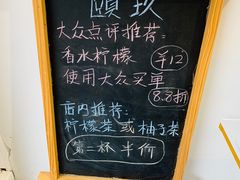 頤玖
大众点评推荐:
香水柠檬 ¥12
使用大众买单
8.8折
店内推荐:
柠檬茶 或 柚子茶
第二杯 半价